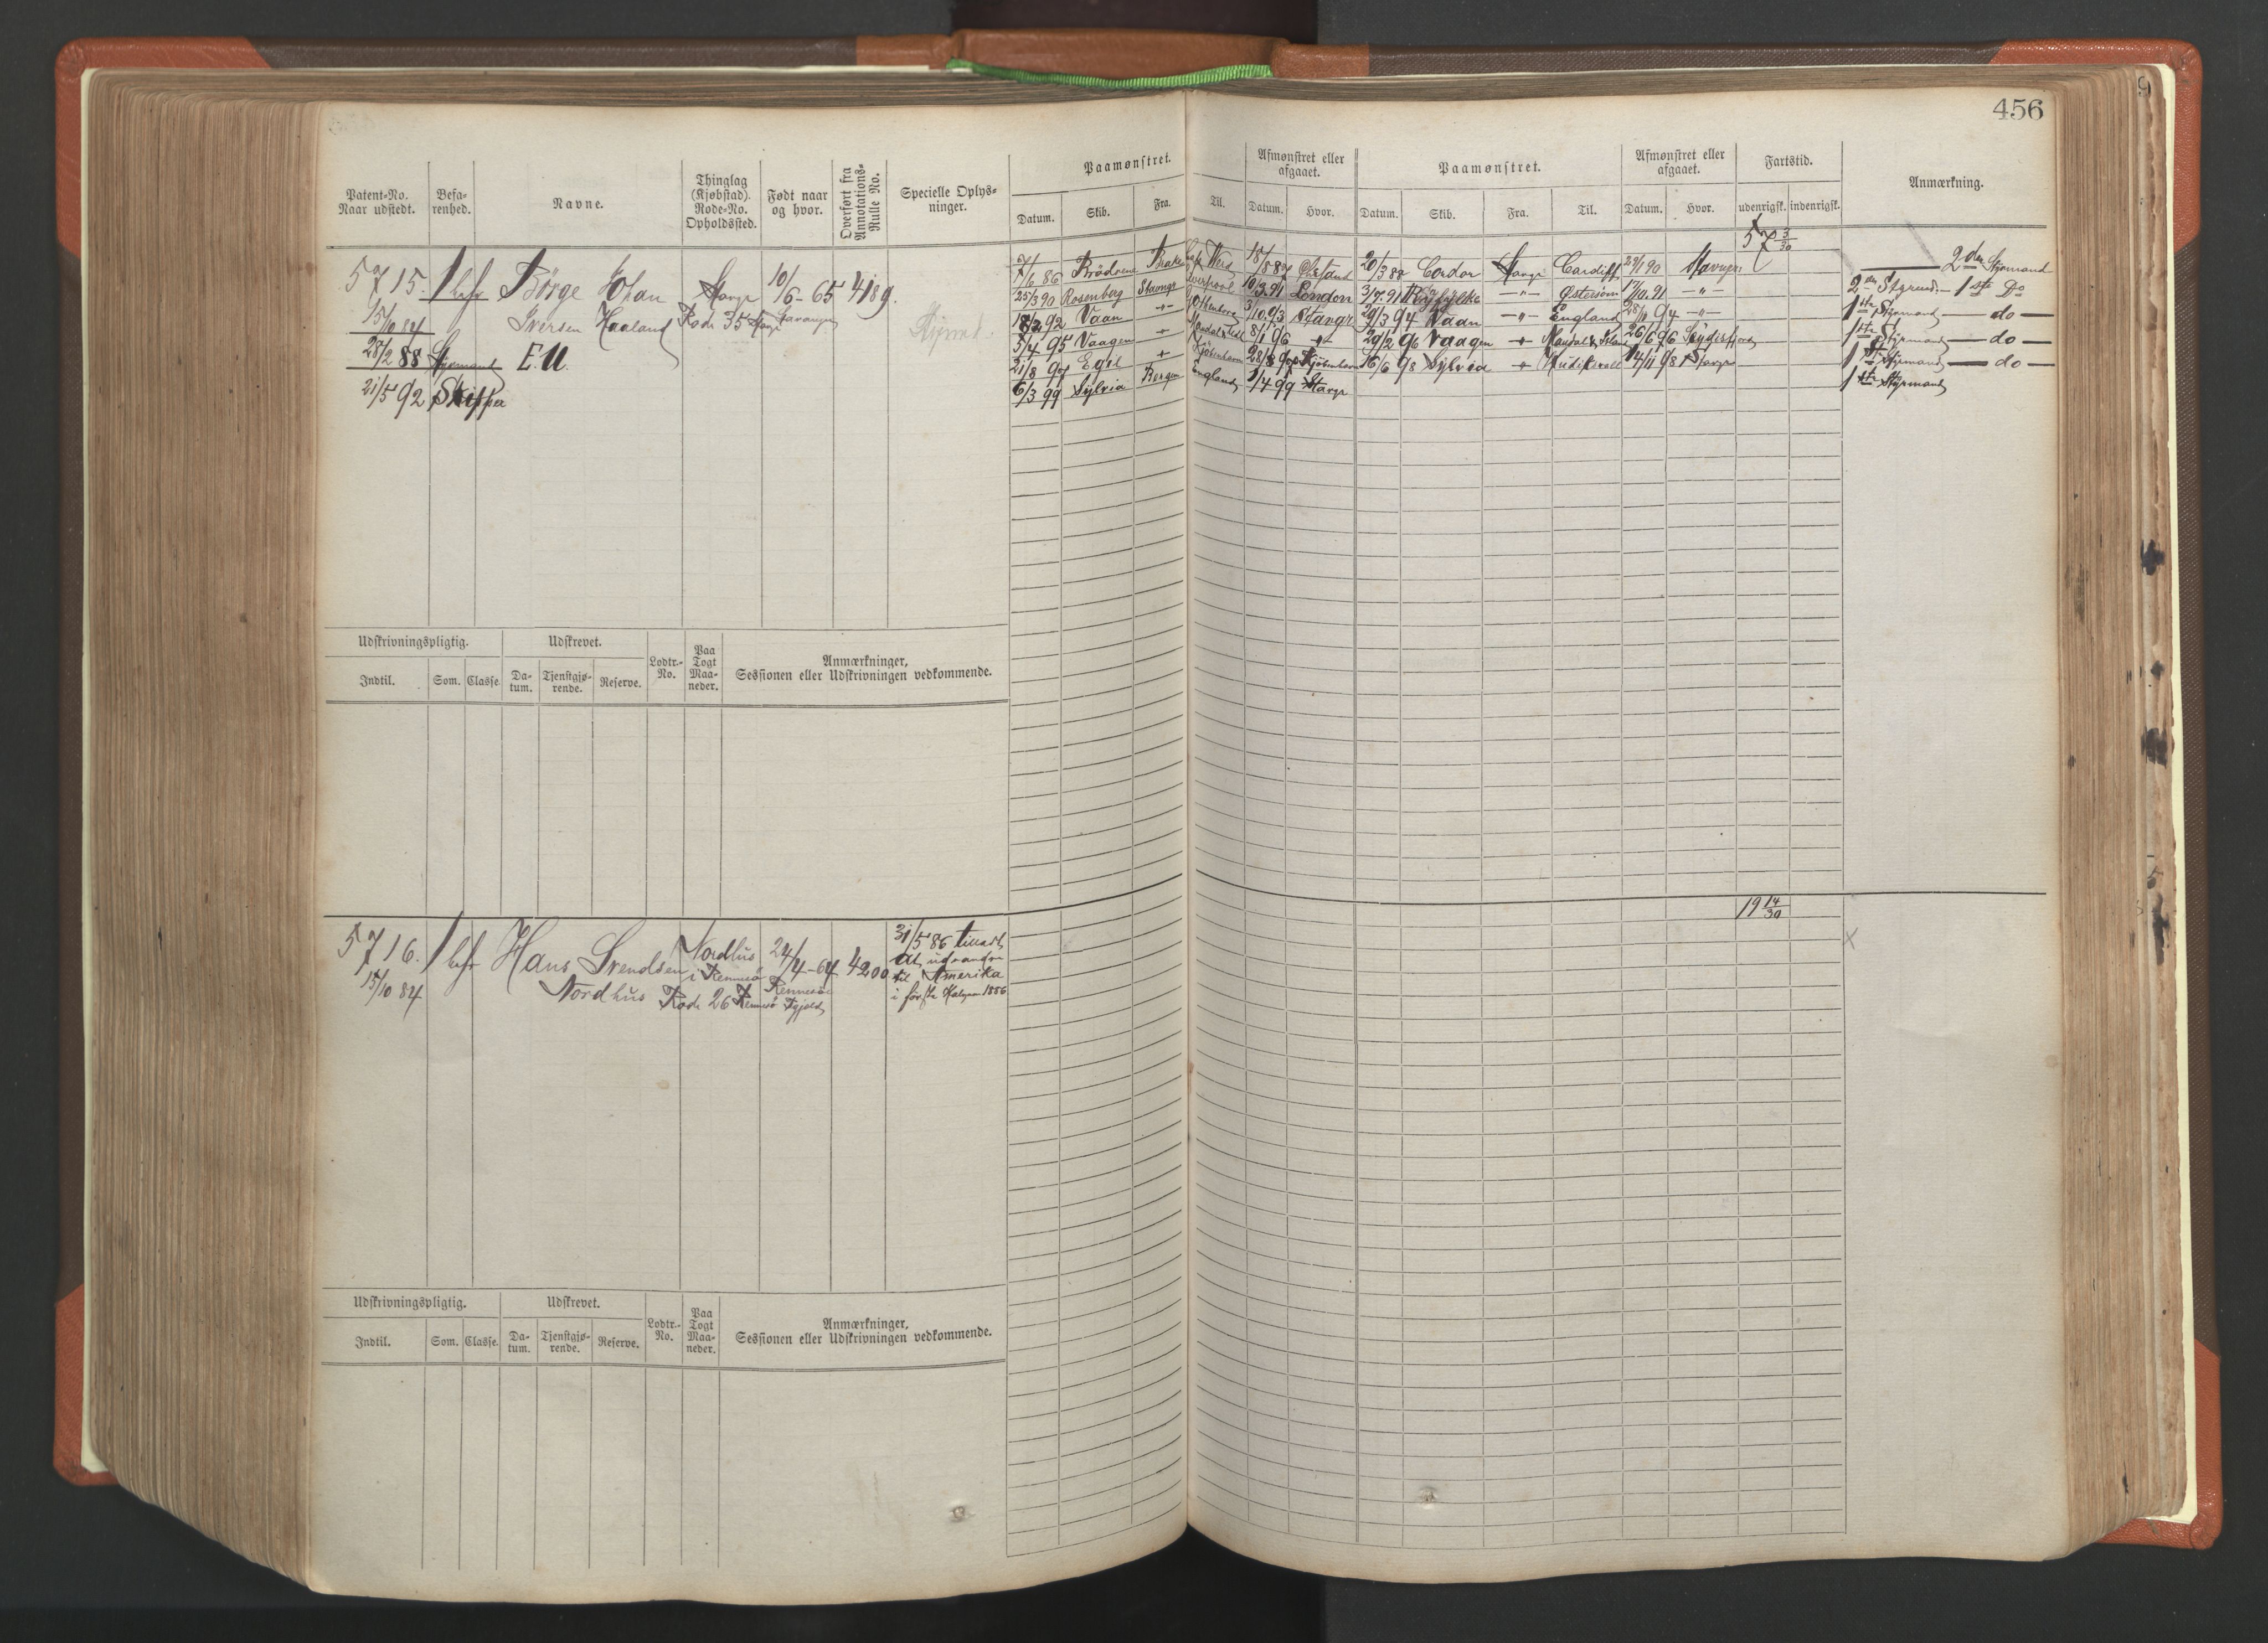 456
Patent-No. Naar udstedt.
Befarenhed.
Navne.
Thinglag (Kjøbstad). Rode-No. Opholdssted.
Født naar og hvor.
Overført fra Annotations-Rulle No.
Specielle Oplys-ninger.
Paamønstret.
Datum. Skib. Fra. Til.
Afmønstret eller afgaaet.
Datum. Hvor.
Paamønstret.
Datum. Skib. Fra. Til.
Afmønstret eller afgaaet.
Datum. Hvor.
Fartstid.
udenrigsk. indenrigsk.
Anmærkning.
5715. 1 Børge Johan Stavgr 10/6-65 4189.
15/10 84 Iversen Haaland Rode 35 Stavgr Stavanger
28/2 88 Styrmand E.U.
21/5 92 Skipper
57 3/30
7/6 86 Brødrene 18/8 87 20/3 88 Condor Stavgr Cardiff 29/1 90 Stavanger 2den Styrmand
25/3 90 Rosenborg Stavngr Liverpool 10/3.91 London 31/7.91 Ryfylke —"— Østersøen 17/10.91 —"— 2den Styrmd. — 1ste Do
18/2 92 Vaan —"— 3/10.93 Stavgr 29/3 94 Vaan —"— England 28/11 94 —"— 1ste Styrmand — do —
5/4 95 Vaagen —"— 8/1 96 —"— 29/2 96 Vaagen —"— Mandal & Island 26/6 96 1ste Styrmand — do —
21/8 97 Egil —"— Kjøbenhavn Kjøbenhavn 16/6 98 Sylvia —"— 14/11 98 Stavgr 1ste Styrmand — do —
6/3 99 Sylvia Bergen England 1/4 99 Stavgr 1ste Styrmand
Udskrivningspligtig.
Udskrevet.
Lodtr.-No.
Paa Togt Maa-neder.
Anmærkninger,
Sessionen eller Udskrivningen vedkommende.
Indtil. Som. Classe. Da-tum. Tjenstgjø-rende. Reserve.
5716. 1 Hans Svendsen Nordhus 24/4-64 4200 31/5 86 tilladt
15/10 84 Nordhus i Rennesø Rennesø at udvandre
Rode 26 Rennesø til Amerika
i første Halvaar 1886
19 14/30
x
Udskrivningspligtig.
Udskrevet.
Lodtr.-No.
Paa Togt Maa-neder.
Anmærkninger,
Sessionen eller Udskrivningen vedkommende.
Indtil. Som. Classe. Da-tum. Tjenstgjø-rende. Reserve.